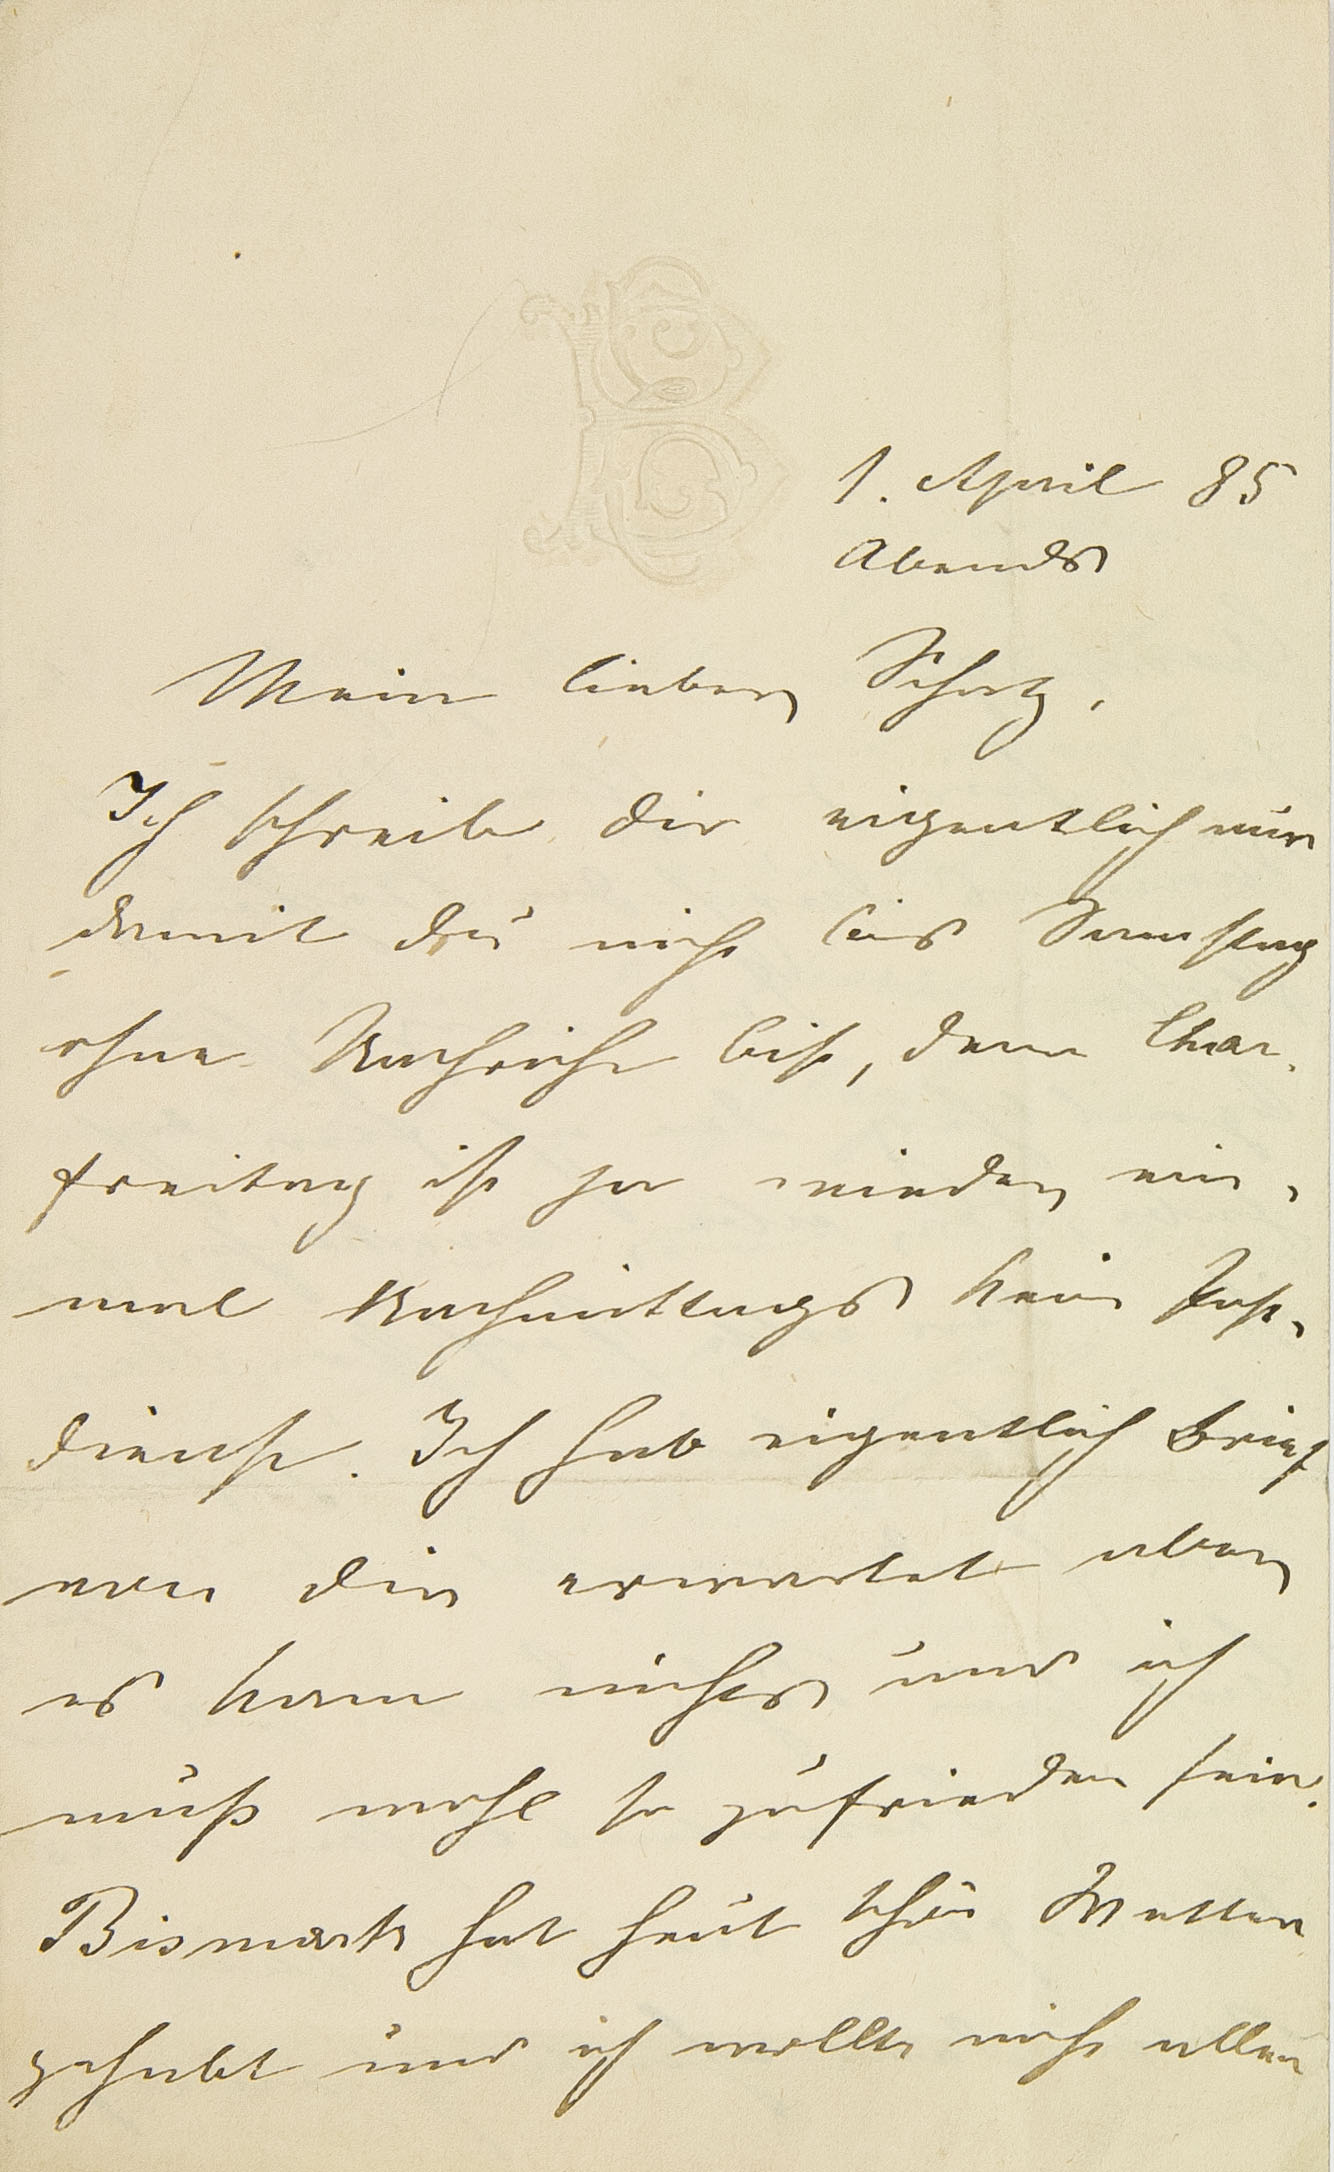 1. April 85
Abends
Mein lieber Schatz,
Ich schreibe dir eigentlich nur
damit du nicht bis Samstag
ohne Nachricht bist, denn Char-
freitag ist ja wieder ein-
mal Nachmittags kein Post-
dienst. Ich hab eigentlich Brief
von dir erwartet aber
es kam nichts und ich
muß wohl so zufrieden sein.
Bismark hat heut schön Wetter
gehabt und ich wollte nicht allein